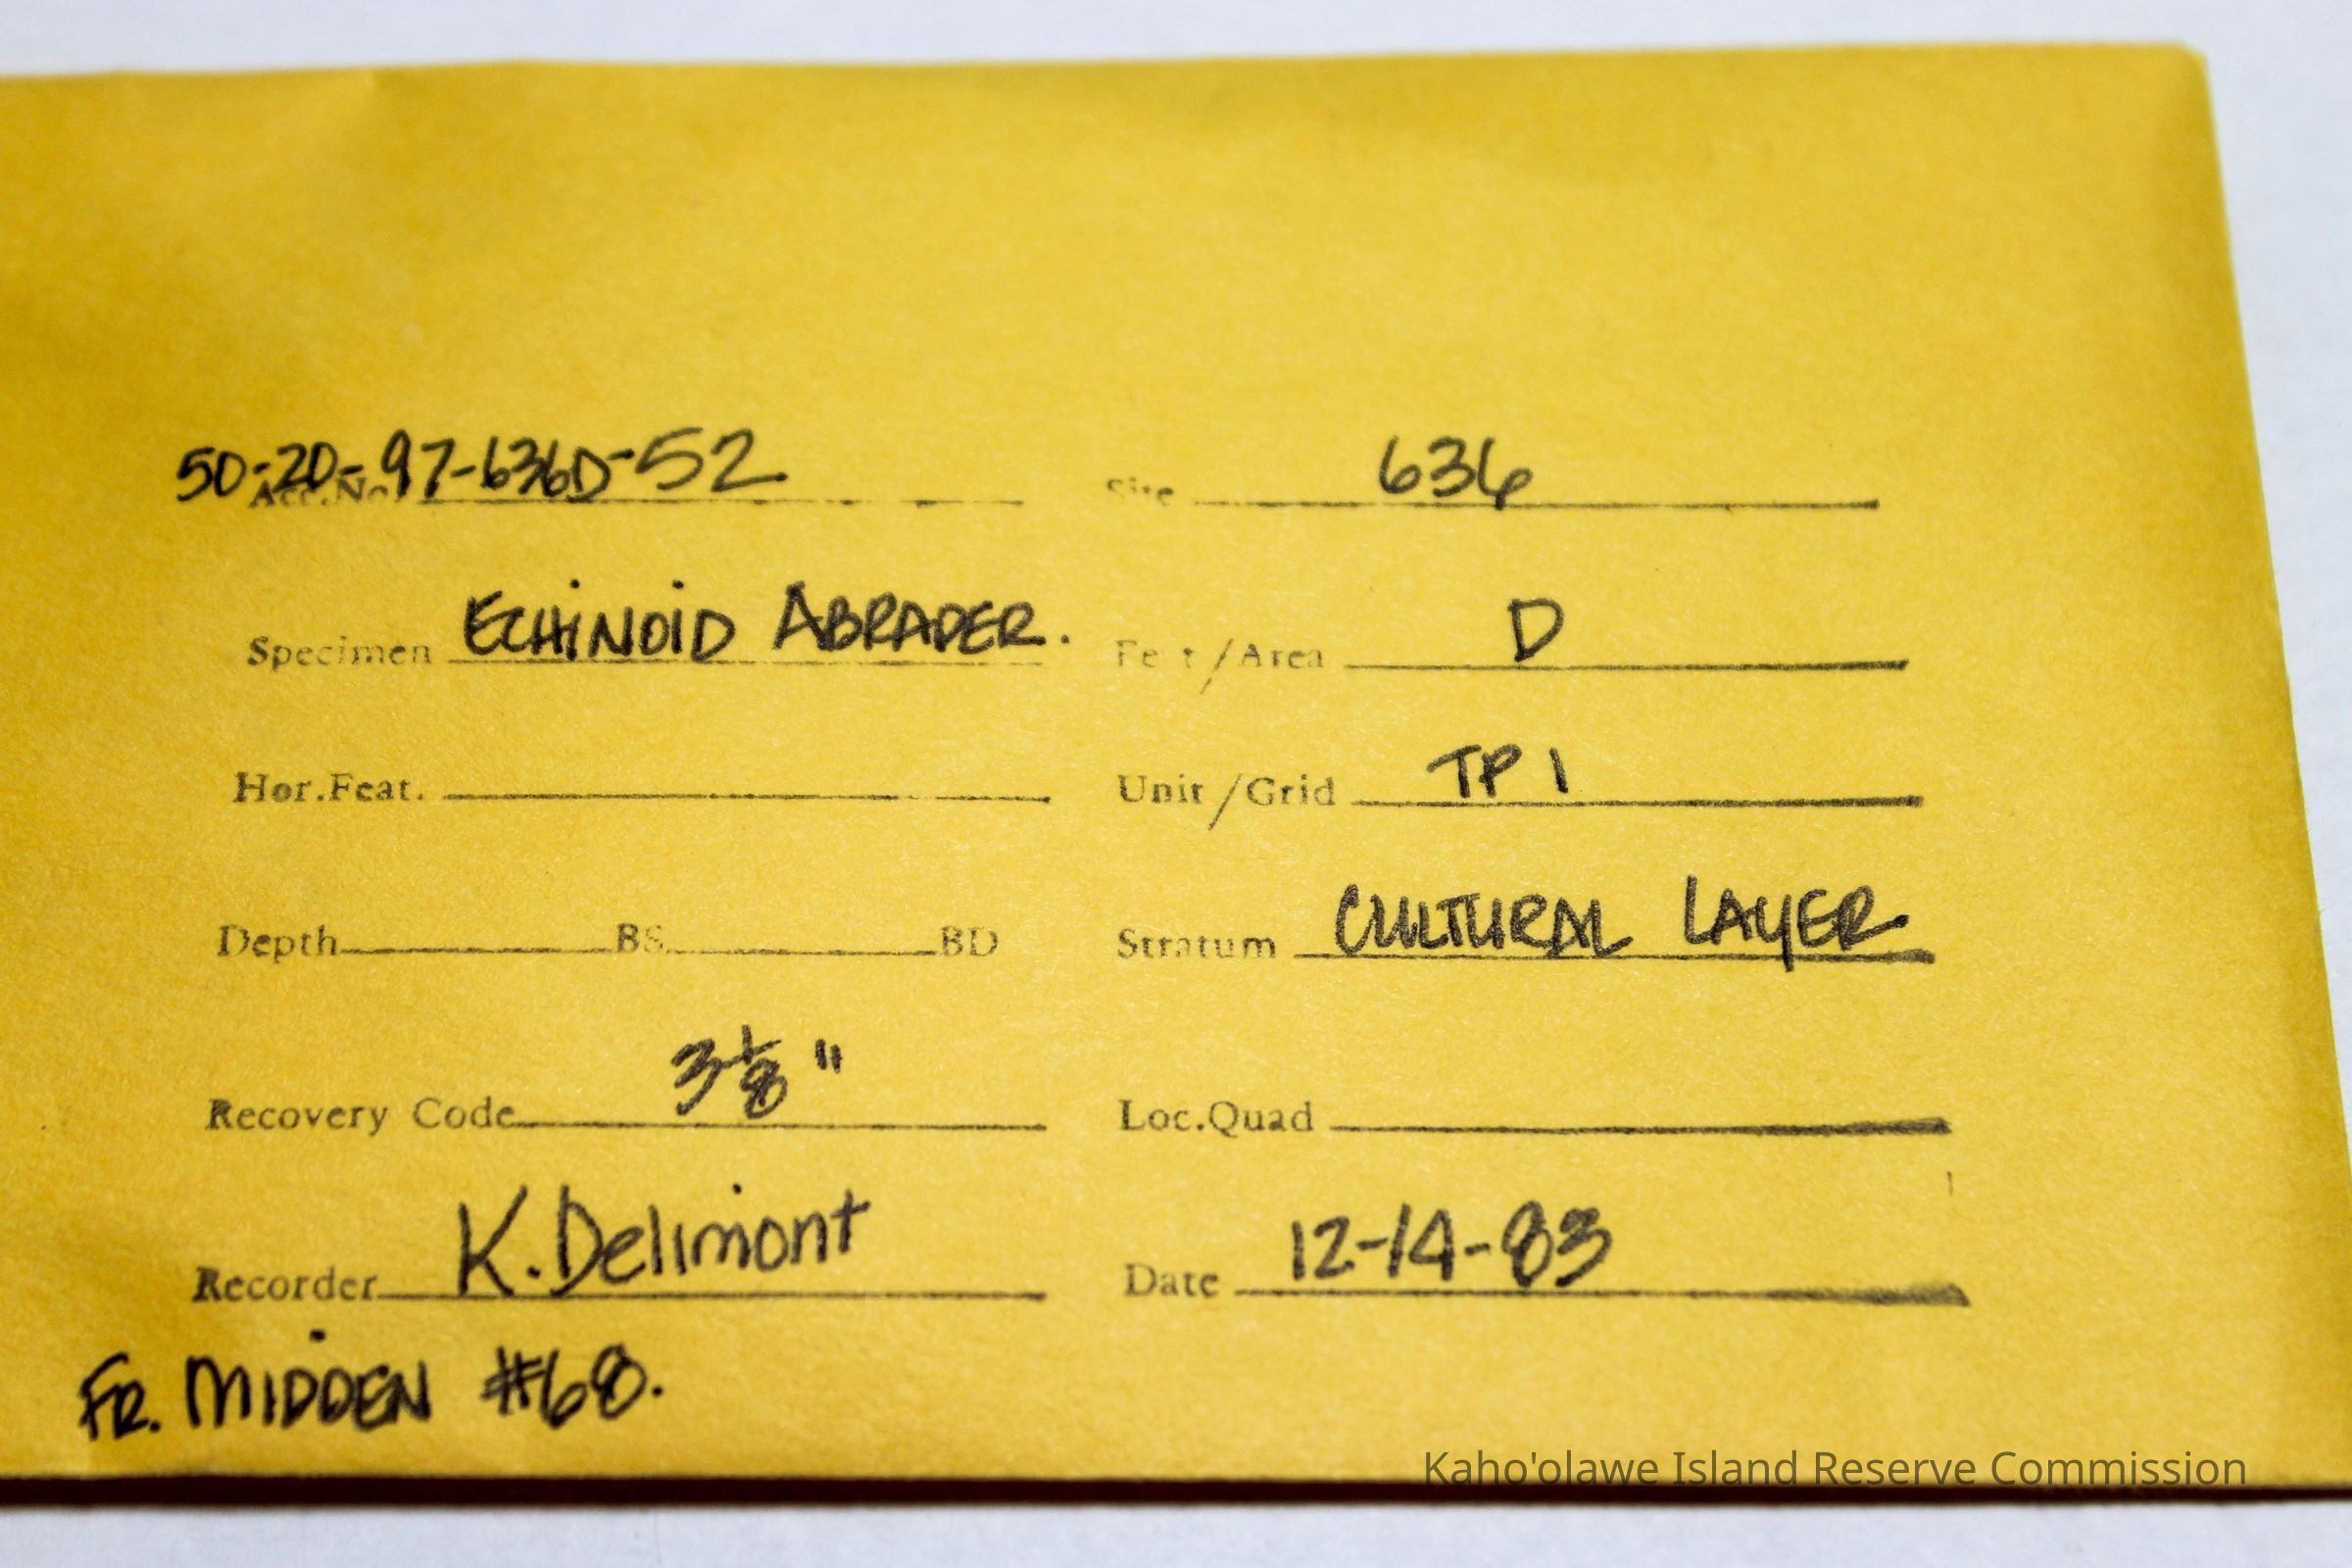 50-20-97-636D-52
Acc.No. Site 636
Specimen ECHINOID ABRADER. Feat/Area D
Hor.Feat. Unit/Grid TP 1
Depth BS BD Stratum CULTURAL LAYER
Recovery Code 3 1/8" Loc.Quad
Recorder K. Delimont Date 12-14-83
FR. MIDDEN #68.
Kaho'olawe Island Reserve Commission